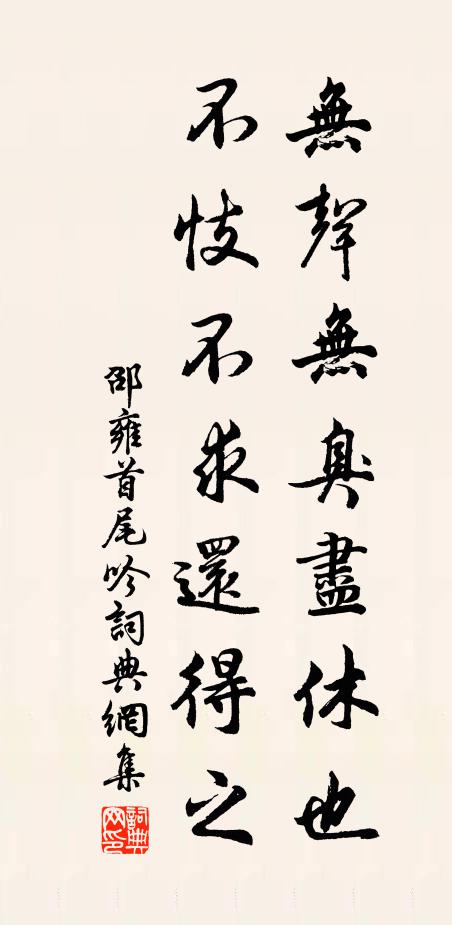 無聲無臭盡休也
不忮不求還得之
邵雍首尾吟詞典網集
詞典网印